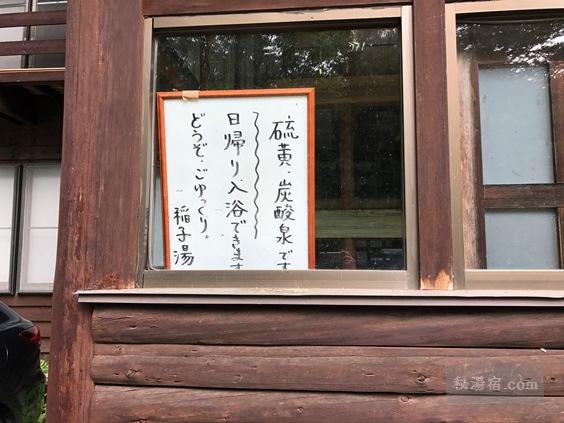 硫黄、炭酸泉です
日帰り入浴できます
どうぞ、ごゆっくり。
稲子湯
秘湯宿.com